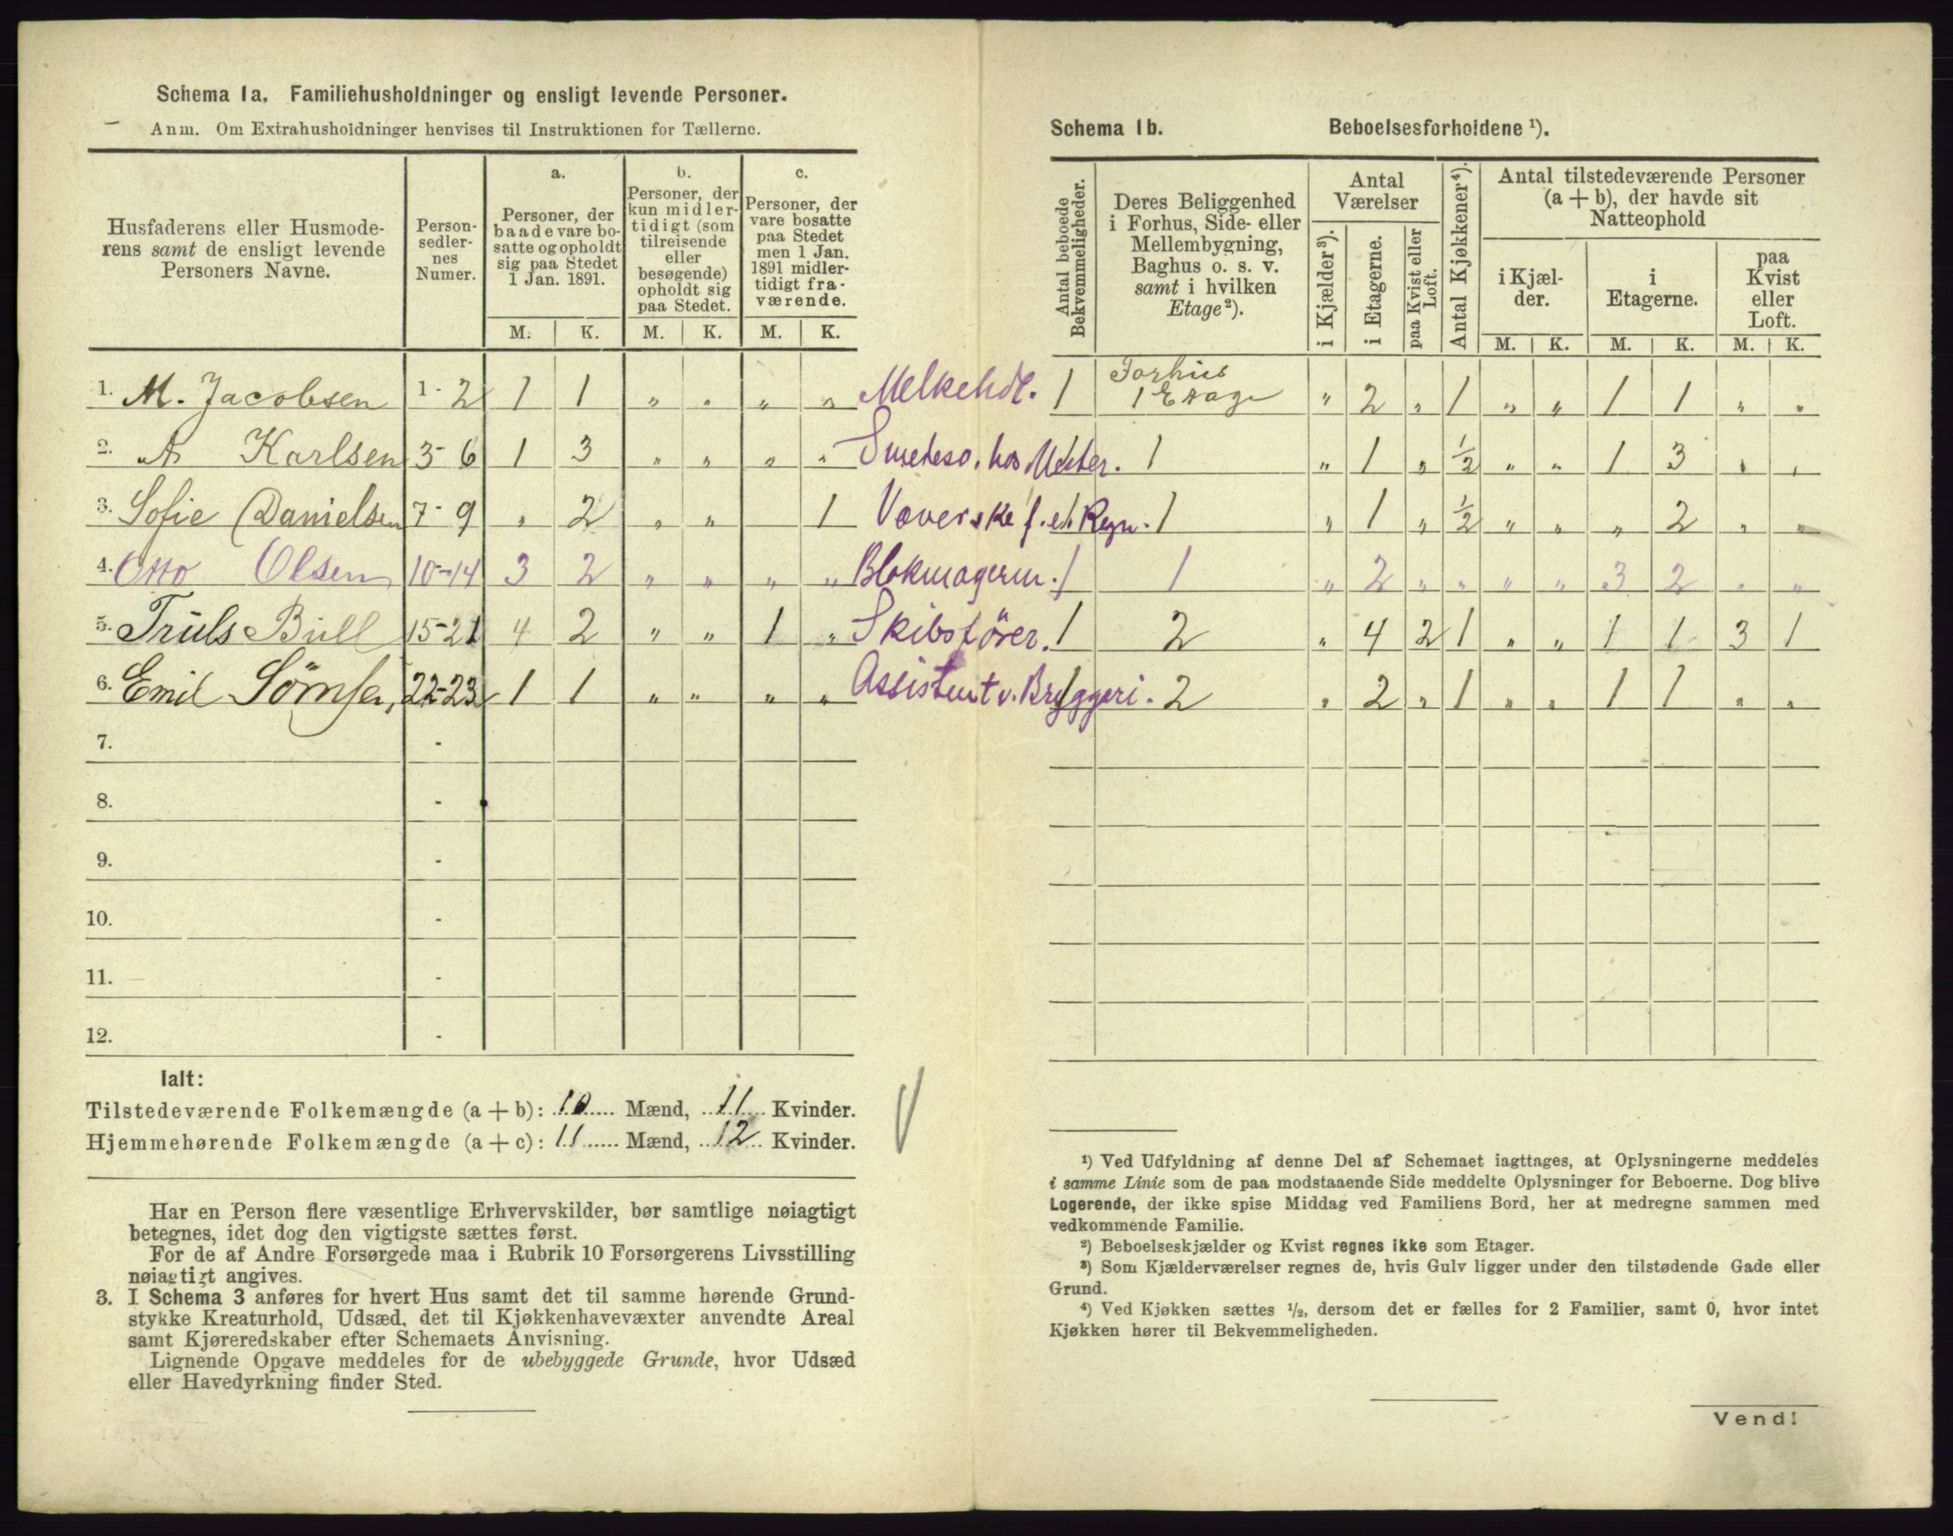 Schema 1a. Familiehusholdninger og ensligt levende Personer.
Anm. Om Extrahusholdninger henvises til Instruktionen for Tællerne.
Husfaderens eller Husmode-
rens samt de ensligt levende
Personers Navne.
Person-
sedler-
nes
Numer.
a.
Personer, der
baade vare bo-
satte og opholdt
sig paa Stedet
1 Jan. 1891.
b.
Personer, der
kun midler-
tidigt (som
tilreisende
eller
besøgende)
opholdt sig
paa Stedet.
c.
Personer, der
vare bosatte
paa Stedet
men 1 Jan.
1891 midler-
tidigt fra-
værende.
M. K. M. K. M. K.
1. M. Jacobsen 1-2 1 1 „ „ „ „ Melkehdl.
2. A Karlsen 3-6 1 3 „ „ „ „ Smedesv. hos Mester.
3. Sofie Danielsen 7-9 „ 2 „ „ 1 Væverske f. eh. Regn.
4. Otto Olsen 10-14 3 2 „ „ „ „ Blokmagerm.
5. Truls Bull 15-21 4 2 „ „ 1 „ Skibsfører.
6. Emil 22-23 1 1 „ „ „ „ Assistent v. Bryggeri.
7. -
8. -
9. -
10. -
11. -
12. -
Ialt:
Tilstedeværende Folkemængde (a + b): 10 Mænd, 11 Kvinder.
Hjemmehørende Folkemængde (a + c): 11 Mænd, 12 Kvinder.
Har en Person flere væsentlige Erhvervskilder, bør samtlige nøiagtigt
betegnes, idet dog den vigtigste sættes først.
For de af Andre Forsørgede maa i Rubrik 10 Forsørgerens Livsstilling
nøiagtigt angives.
3. I Schema 3 anføres for hvert Hus samt det til samme hørende Grund-
stykke Kreaturhold, Udsæd, det til Kjøkkenhavevæxter anvendte Areal
samt Kjøreredskaber efter Schemaets Anvisning.
Lignende Opgave meddeles for de ubebyggede Grunde, hvor Udsæd
eller Havedyrkning finder Sted.
Schema 1b. Beboelsesforholdene ¹).
Antal beboede
Bekvemmeligheder.
Deres Beliggenhed
i Forhus, Side- eller
Mellembygning,
Baghus o. s. v.
samt i hvilken
Etage²).
Antal
Værelser
i Kjælder³).
i Etagerne.
paa Kvist eller
Loft.
Antal Kjøkkener⁴).
Antal tilstedeværende Personer
(a + b), der havde sit
Natteophold
i Kjæl-
der.
i
Etagerne.
paa
Kvist
eller
Loft.
M. K. M. K. M. K.
1 Forhus
1 Etage „ 2 „ 1 „ „ 1 1 „ „
1 1 „ 1 „ ½ „ „ 1 3 „ „
1 1 „ 1 „ ½ „ „ „ 2 „ „
1 1 „ 2 „ „ „ „ 3 2 „ „
1 2 „ 4 2 1 „ „ 1 1 3 1
1 2 „ 2 „ 1 „ „ 1 1 „ „
¹) Ved Udfyldning af denne Del af Schemaet iagttages, at Oplysningerne meddeles
i samme Linie som de paa modstaaende Side meddelte Oplysninger for Beboerne. Dog blive
Logerende, der ikke spise Middag ved Familiens Bord, her at medregne sammen med
vedkommende Familie.
²) Beboelseskjælder og Kvist regnes ikke som Etager.
³) Som Kjælderværelser regnes de, hvis Gulv ligger under den tilstødende Gade eller
Grund.
⁴) Ved Kjøkken sættes ½, dersom det er fælles for 2 Familier, samt 0, hvor intet
Kjøkken hører til Bekvemmeligheden.
Vend!